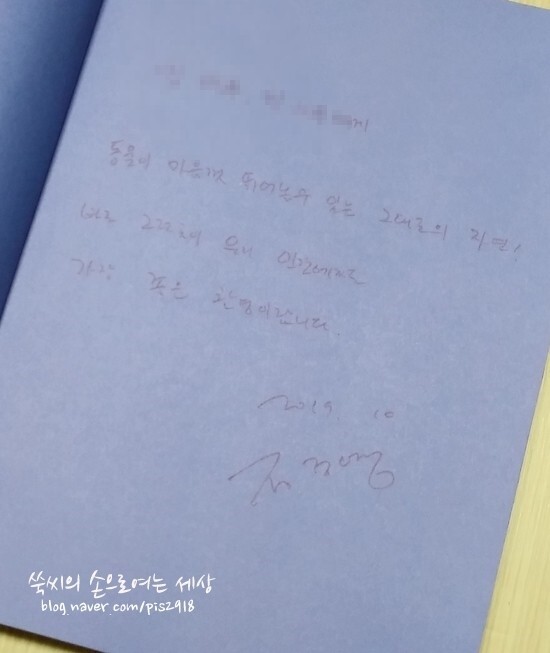 께
동물이 마음껏 뛰어놀 수 있는 그대로의 자연!
바로 그곳이 우리 인간에게도
가장 좋은 환경이랍니다.
2019. 10
쑥씨의 손으로여는 세상
blog.naver.com/pis2918